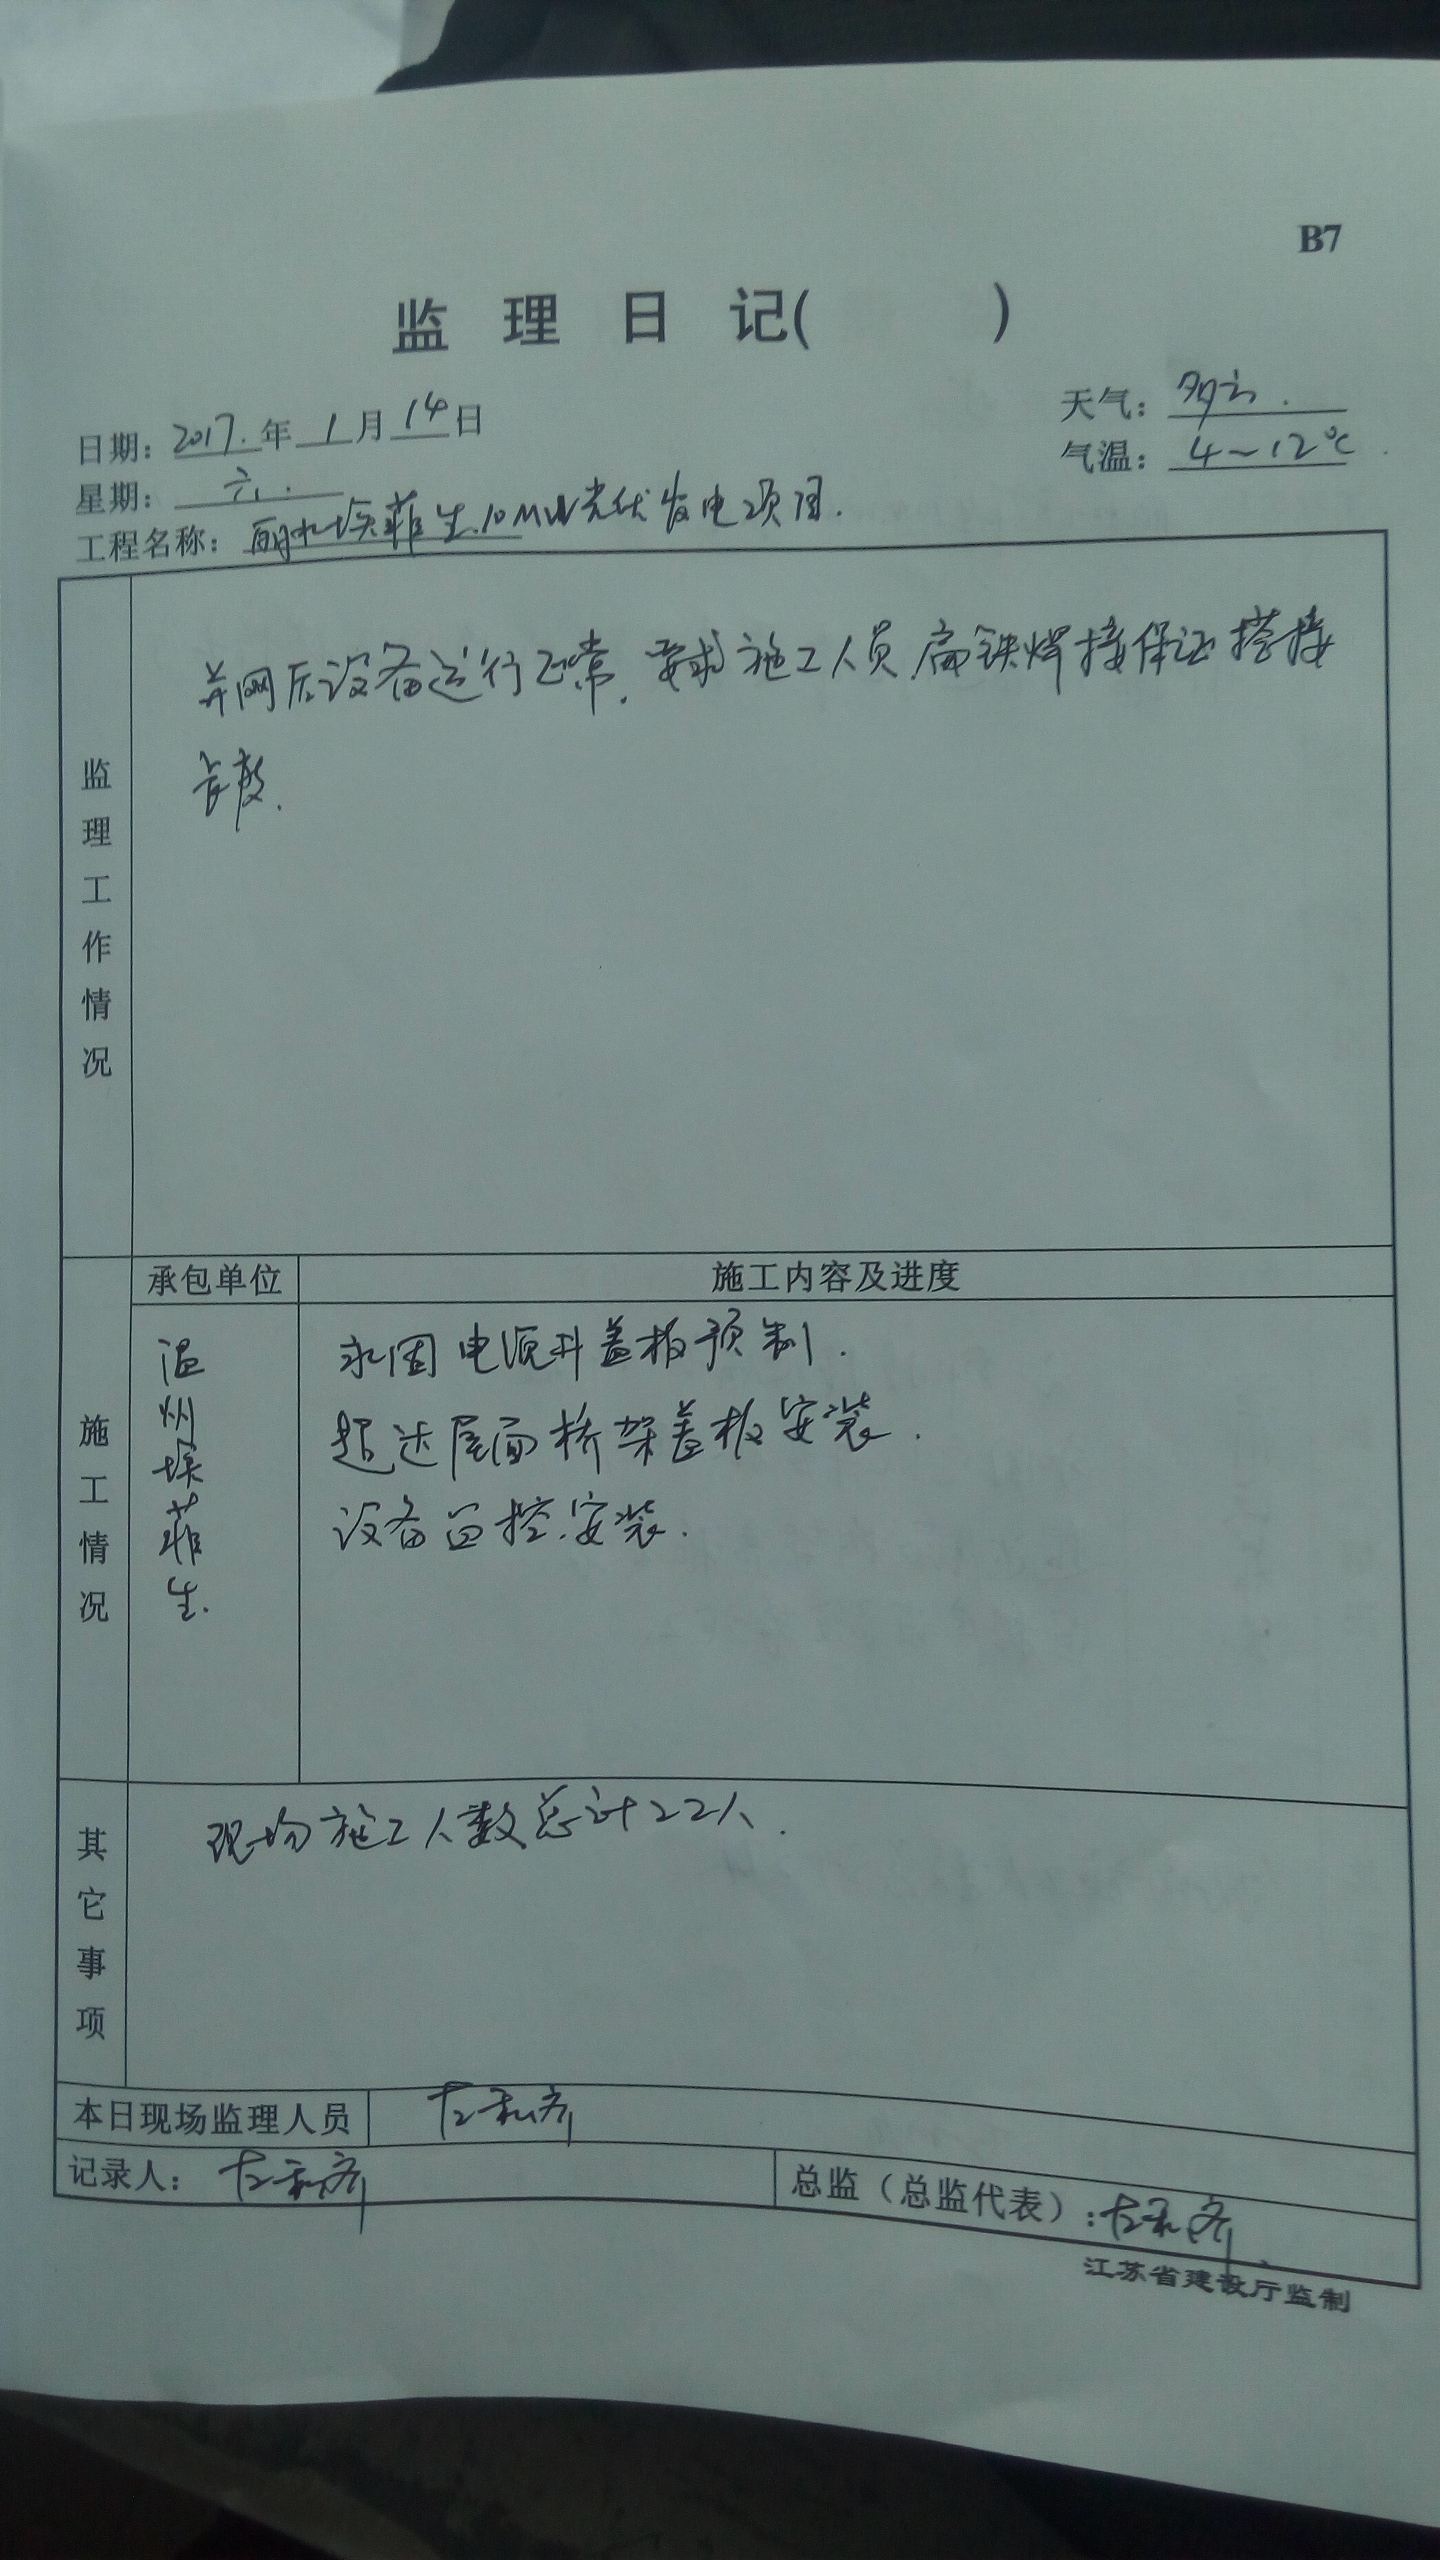 B7
监理日记( )
日期: 2017.年 1月 14日
天气: 多云.
星期: 六.
气温: 4~12℃.
工程名称: 丽水埃菲生10MW光伏发电项目.
监理工作情况
并网后设备运行正常.要求施工人员扁铁焊接保证搭接
长度.
施工情况
承包单位 施工内容及进度
温州埃菲生.
永固电源井盖板预制.
超达屋面桥架盖板安装.
设备监控安装.
其它事项
现场施工人数总计22人.
本日现场监理人员
记录人:
总监（总监代表）:
江苏省建设厅监制